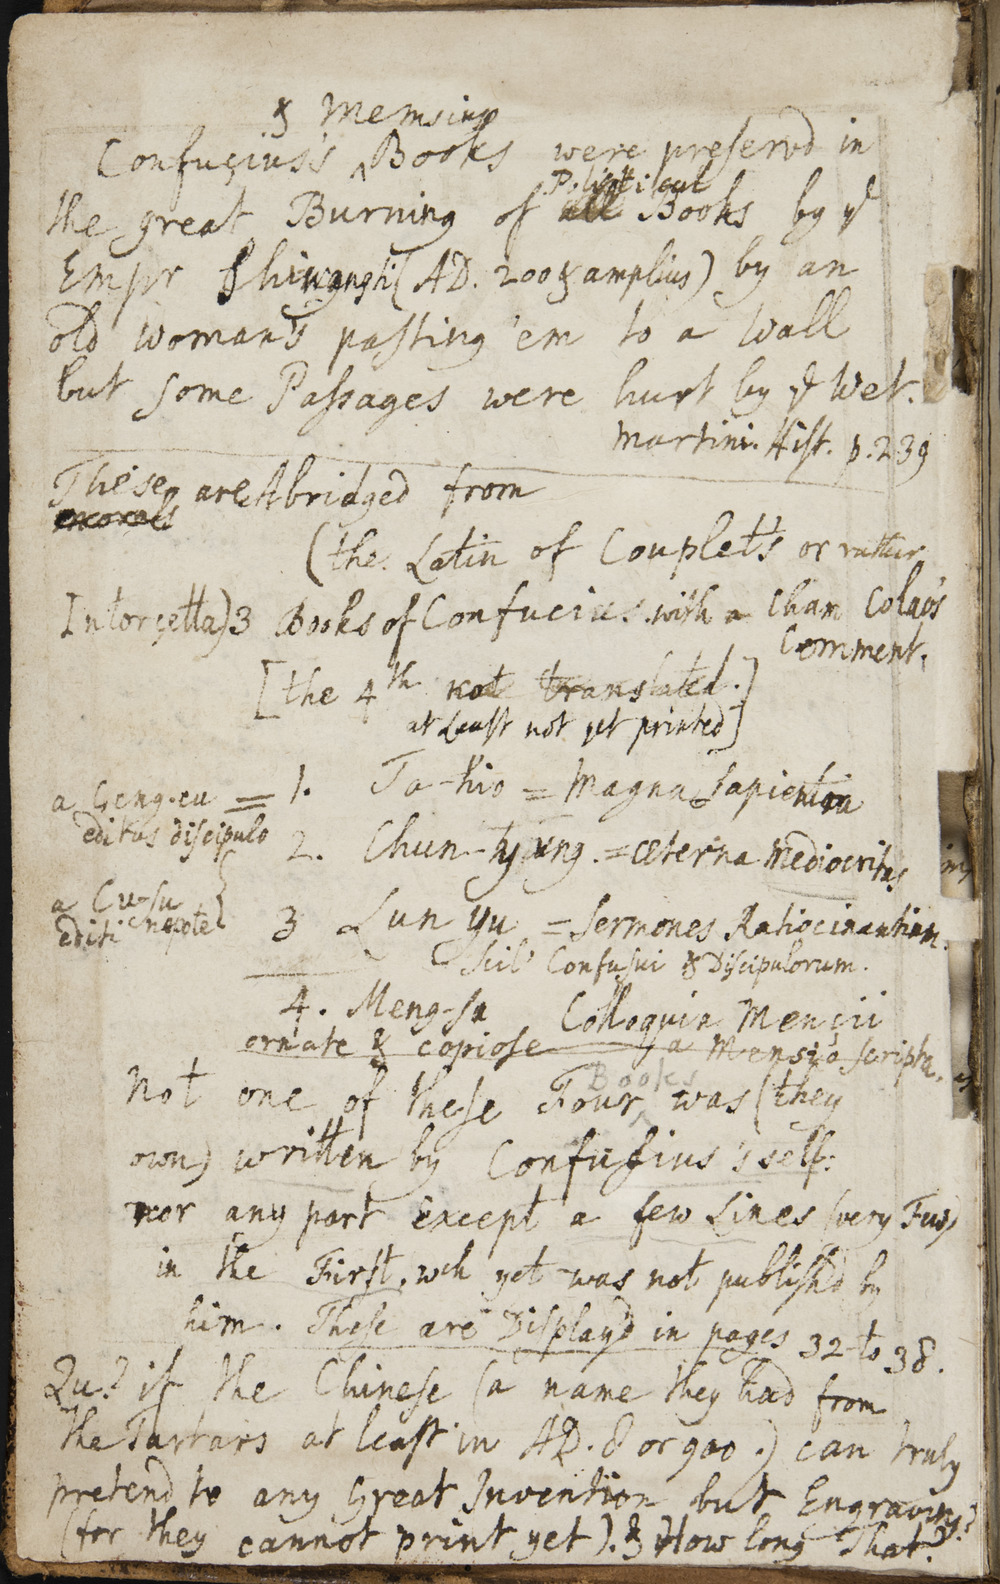 & Memsius
Confuçius's ^ Books were preservd in
Political
the great Burning of all Books by ye
Empr Shiwangti (AD. 200 & amplius) by an
old woman's pasting 'em to a Wall
but some Passages were hurt by ye Wet.
Martini. Hist. p. 239
These are Abridged from
(the Latin of Couplet's or rather
Intorçetta) 3 Books of Confucius. with a Cham Colao's
Comment.
[the 4th not translated.]
at Least not yet printed]
a Çeng-eu = 1. Ta-hio = Magna Sapientia
editus discipulo
2. Chun-tyung = æterna Mediocritas
a Cu-su
editi nepote }
3 Lun Yu = Sermones Ratiocinantium.
Scil' Confusii & Discipulorum.
4. Meng-su Colloquia Mençii
ornate & copiose a Mensio scripta.
Books
Not one of these Four ^ was (they
own) written by Confusius's self:
nor any part Except a few Lines (very Few)
in the First, wch yet was not publish'd by
him. These are Display'd in pages 32 to 38.
Qu? if the Chinese (a name they had from
the Tartars at least in AD. 8 or 900.) can truly
pretend to any Great Invention but Engraving?
(for they cannot print yet). & How long That?